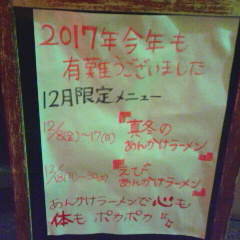 2017年今年も
有難うございました
12月限定メニュー
12/8(金)~17(日)
真冬の
あんかけラーメン
えび
あんかけラーメン
あんかけラーメンで心も
体もポカポカ